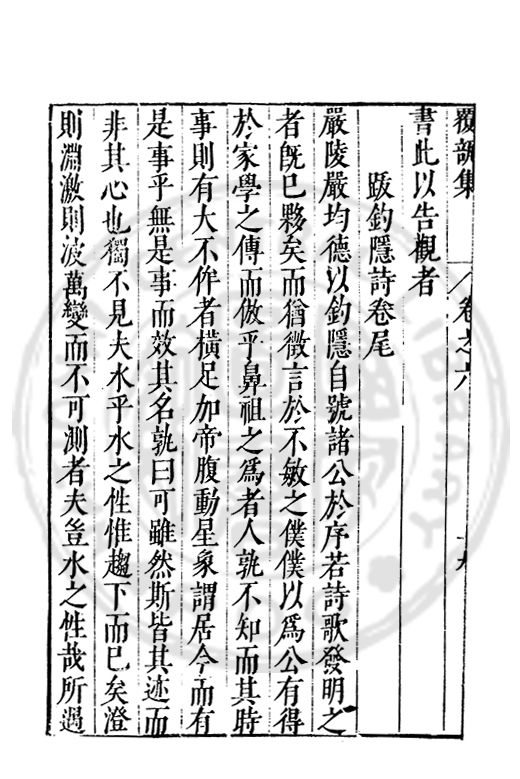 覆瓿集 卷之六
書此以告觀者
跋釣隱詩卷尾
嚴陵嚴均德以釣隱自號諸公於序若詩歌發明之
者旣已夥矣而猶徵言於不敏之僕僕以爲公有得
於家學之傳而倣乎鼻祖之爲者人孰不知而其時
事則有大不侔者橫足加帝腹動星象謂居今而有
是事乎無是事而效其名孰曰可雖然斯皆其迹而
非其心也獨不見夫水乎水之性惟趨下而已矣澄
則淵激則波萬變而不可測者夫豈水之性哉所遇